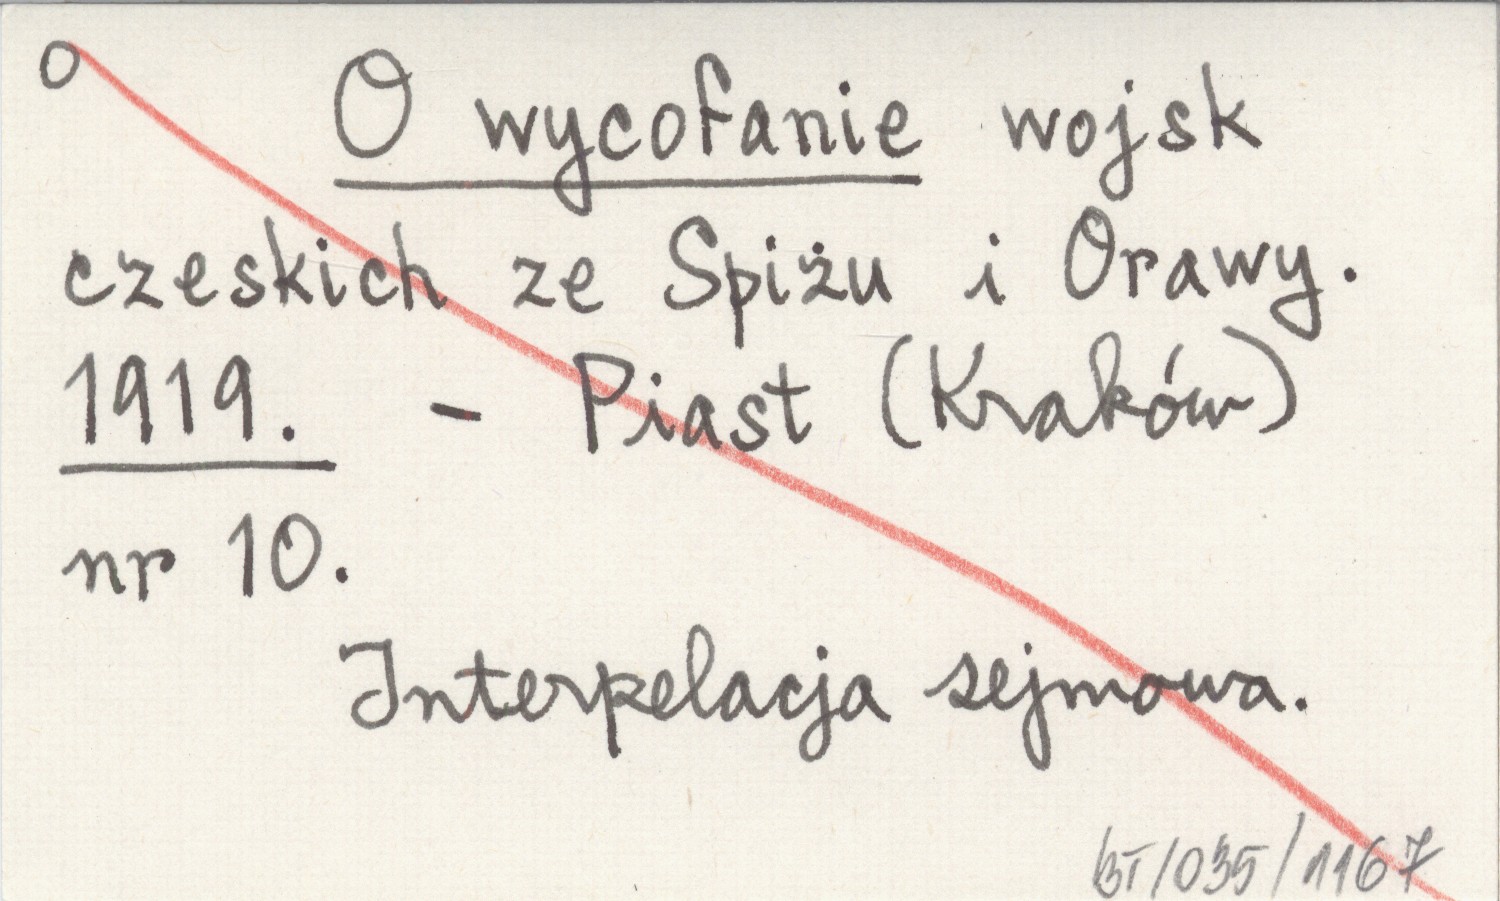 O
O wycofanie wojsk
czeskich ze Spiżu i Orawy.
1919. - Piast (Kraków)
nr 10.
Interpelacja sejmowa.
BT/035/1167